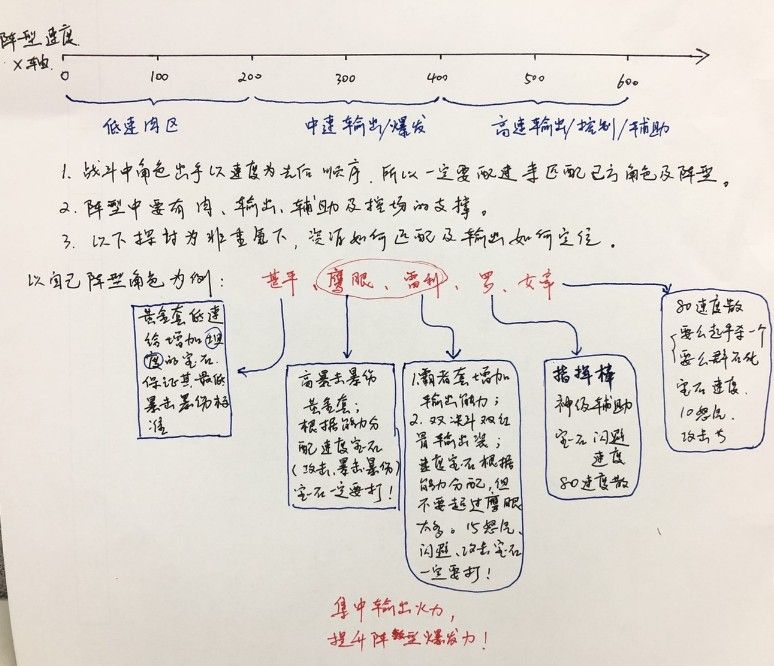 阵型速度
X轴
0 100 200 300 400 500 600
低速肉区 中速输出/爆发 高速输出/控制/辅助
1. 战斗中角色出手以速度为先后顺序,所以一定要配速来匹配己方角色及阵型。
2. 阵型中要有肉、输出、辅助及控场的支撑。
3. 以下探讨为非重氪下,资源如何匹配及输出如何定位。
以自己阵型角色为例: 甚平、鹰眼、雷利、罗、女帝
黄金套低速
给增加坦
度的宝石.
保证其最低
暴击暴伤标
准
高暴击暴伤
黄金套;
根据能力分
配速度宝石
(攻击、暴击暴伤)
宝石一定要打!
1.霸者套增加
输出能力;
2.双决斗双红
骨输出装;
速度宝石根据
能力分配,但
不要超过鹰眼
太多。15怒气、
闪避、攻击宝石
一定要打!
指挥棒
神级辅助
宝石 闪避
速度
80速度散
80速度散
要么起手杀一个
要么群石化
宝石 速度.
10怒气.
攻击
集中输出火力,
提升阵型爆发力!